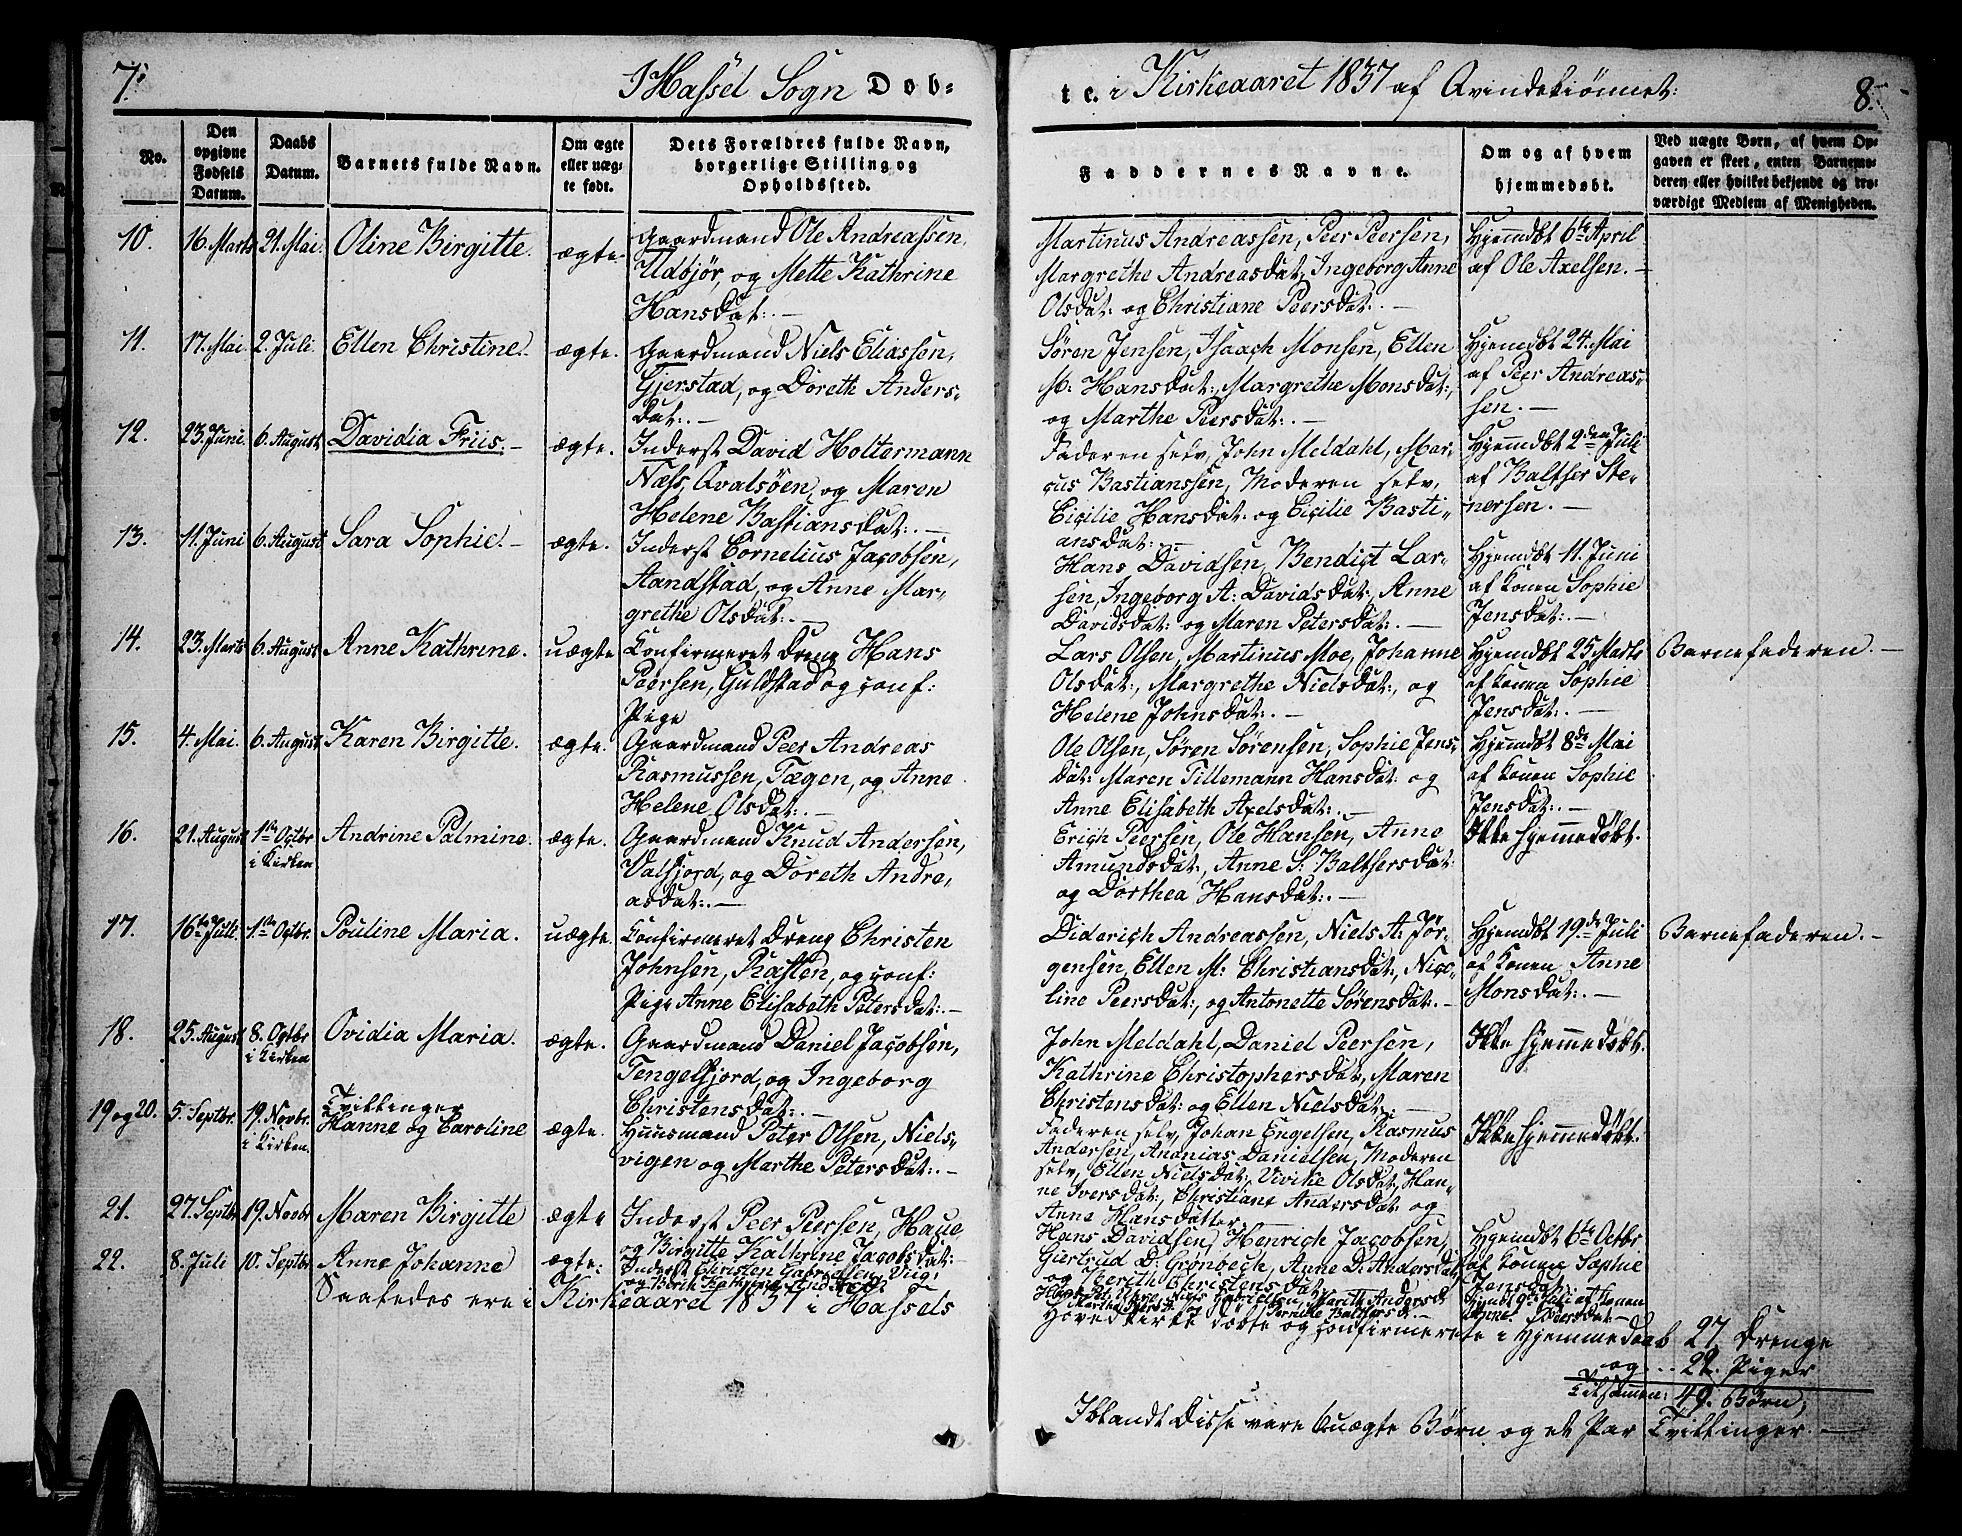 7. I Hassel Sogn Døb-
te i Kirkeaaret 1837 af Qvindekiønnet: 8.
No.
Den opgivne Fødsels Datum.
Daabs Datum.
Barnets fulde Navn.
Om ægte eller uægte født.
Dets Forældres fulde Navn, borgerlige Stilling og Opholdssted.
Faddernes Navne.
Om og af hvem hjemmedøbt.
Ved uægte Børn, af hvem Opgaven er skeet, enten Barnemoderen eller hvilket bekjendt og troværdigt Medlem af Menigheden.
10. 16. Marts 21. Mai. Oline Birgitte. ægte.
Gaardmand Ole Andreassen,
Udbjør, og Mette Kathrine
Hansdat:. —
Martinus Andreassen, Peer Peersen,
Margrethe Andreasdat:, Ingeborg Anne
Olsdat: og Christiane Peersdat:. —
Hjemdøbt 6te April
af Ole Axelsen. —
11. 17. Mai. 2. Juli. Ellen Christine. ægte.
Gaardmand Niels Eliassen,
Gjerstad, og Doreth Anders-
dat:. —
Søren Jensen, Isaach Monsen, Ellen
M: Hansdat:, Margrethe Monsdat:,
og Marthe Peersdat:. —
Hjemdøbt 24. Mai
af Peer Andreas-
sen. —
12. 23. Juni. 6. August Davidia Friis. — ægte.
Inderst David Holtermann
Næss, Qvalsøen, og Maren
Helene Bastiansdat:. —
Faderen selv, John Meldahl, Mar-
cus Bastianssen, Moderen selv,
Cicilie Hansdat: og Cicilie Basti-
ansdat:. —
Hjemdøbt 2den Juli
af Balthser Ste-
nersen. —
13. 11. Juni 6. August Sara Sophie. — ægte.
Inderst Cornelius Jacobsen,
Aandstad, og Anne Mar-
grethe Olsdat:. —
Hans Davidsen, Bendigt Lar-
sen, Ingeborg A: Davidsdat:, Anne
Davidsdat: og Maren Petersdat:. —
Hjemdøbt 11. Juni
af Konen Sophie
Jensdat:. —
14. 23. Marts 6. August Anne Kathrine. uægte
Confirmeret Dreng Hans
Peersen, Guldstad og conf:
Pige
Lars Olsen, Martinus Moe, Johanne
Olsdat:, Margrethe Nielsdat:, og
Helene Johnsdat:. —
Hjemdøbt 25 Marts
af Konen Sophie
Jensdat:. —
Barnefaderen. —
15. 4. Mai. 6. August Karen Birgitte. ægte.
Gaardmand Peer Andreas
Rasmussen, Tægen, og Anne
Helene Olsdat:. —
Ole Olsen, Søren Sørensen, Sophie Jens-
dat: Maren Tillemann Hansdat: og
Anne Elisabeth Axelsdat:. —
Hjemdøbt 8de Mai
af Konen Sophie
Jensdat:. —
16. 21. August 1ste Octbr i Kirken Andrine Palmine. ægte.
Gaardmand Knud Andersen,
Valfjord, og Doreth Andre-
asdat:. —
Erich Peersen, Ole Hansen, Anne
Amundsdat:, Anne S: Balthsersdat:
og Dorthea Hansdat:. —
Ikke hjemmedøbt.
17. 16te Juli. 1ste Octbr. Pouline Maria. uægte.
Confirmeret Dreng Christen
Johnsen, Kasten, og conf:
Pige Anne Elisabeth Petersdat:. —
Diderich Andreassen, Niels A: Jør-
gensen, Ellen M: Christiansdat:, Nico-
line Peersdat:, og Antonette Sørensdat:. —
Hjemdøbt 19de Juli
af Konen Anne
Monsdat:. —
Barnefaderen. —
18. 25. August 8. Octbr i Kirken Ovidia Maria. ægte.
Gaardmand Daniel Jacobsen,
Tengelfjord, og Ingeborg
Christensdat:. —
John Meldahl, Daniel Peersen,
Kathrine Christophersdat:, Maren
Christensdat: og Ellen Nielsdat:. —
Ikke hjemmedøbt.
19 og 20. 5. Septbr. 19. Novbr. i Kirken. Tvillinger
Hanne og Caroline ægte.
Huusmand Peter Olsen, Niels-
vigen og Marthe Petersdat:. —
Faderen selv, Johan Engelsen, Rasmus
Andersen, Ananias Danielsen, Moderen
selv, Ellen Nielsdat:, Vivike Olsdat:, Han-
ne Iversdat:, Christiane Andersdat: og
Anne Hansdatter.
Ikke hjemmedøbt.
21. 27. Septbr 19. Novbr Maren Birgitte ægte
Inderst Peer Peersen, Haue,
og Birgitte Kathrine Jacobsdat:
Hans Davidsen, Henrich Jacobsen,
Giertrud D: Grønbech, Anne D: Andersdat:
og Berith Christensdat:
Hjemdøbt 6te Octbr
af Konen Sophie
Jensdat:
22. 8. Juli 10. Septbr Anne Johanne ægte:
Inderst Christen Gabrielsen,
Saaledes ere i Kirkeaaret 1837 i Hassels
Hovedkirke døbte og confirmerte i Hjemmedaab 27 Drenge
og ... 22. Piger
Tilsammen: 49. Børn,
Iblandt disse vare 6 uægte Børn, og et Par Tvillinger. —